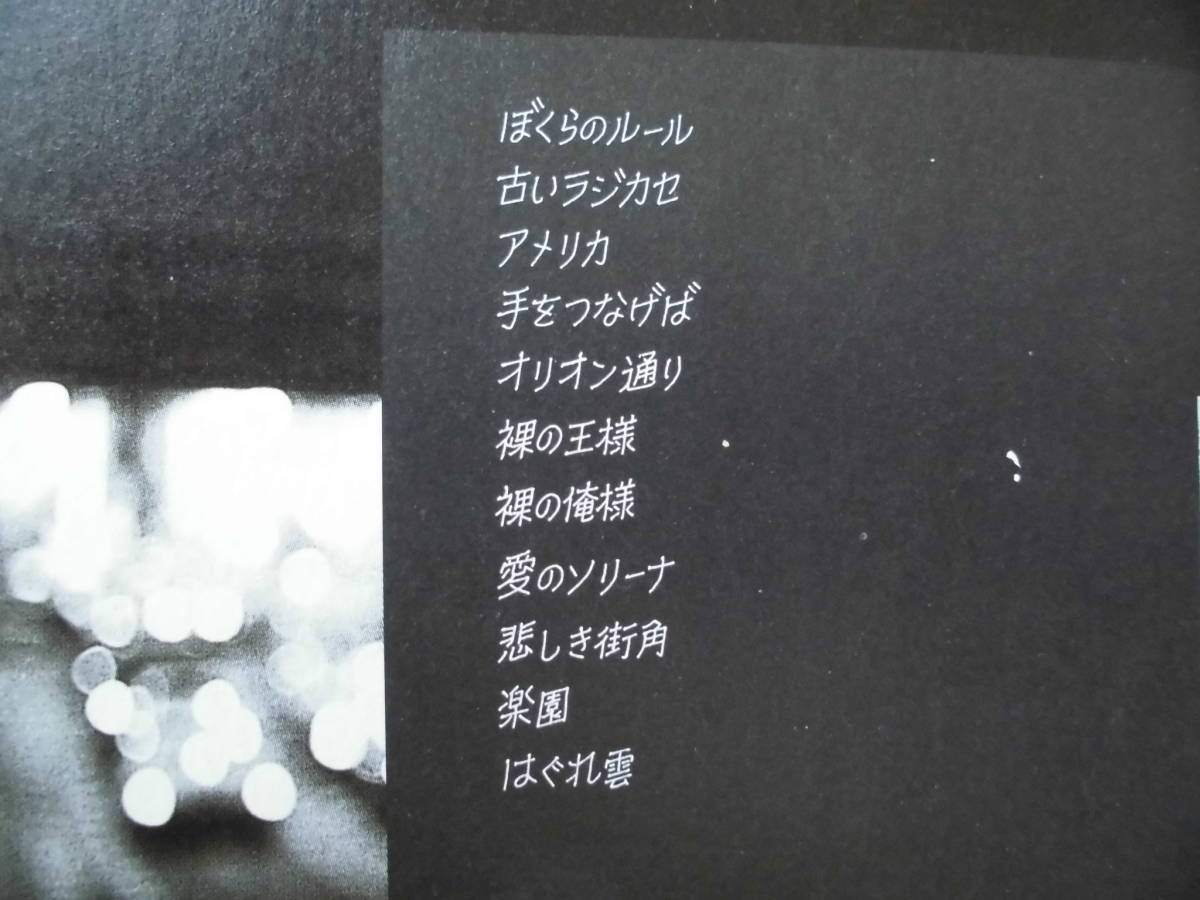 ぼくらのルール
古いラジカセ
アメリカ
手をつなげば
オリオン通り
裸の王様
裸の俺様
愛のソリーナ
悲しき街角
楽園
はぐれ雲